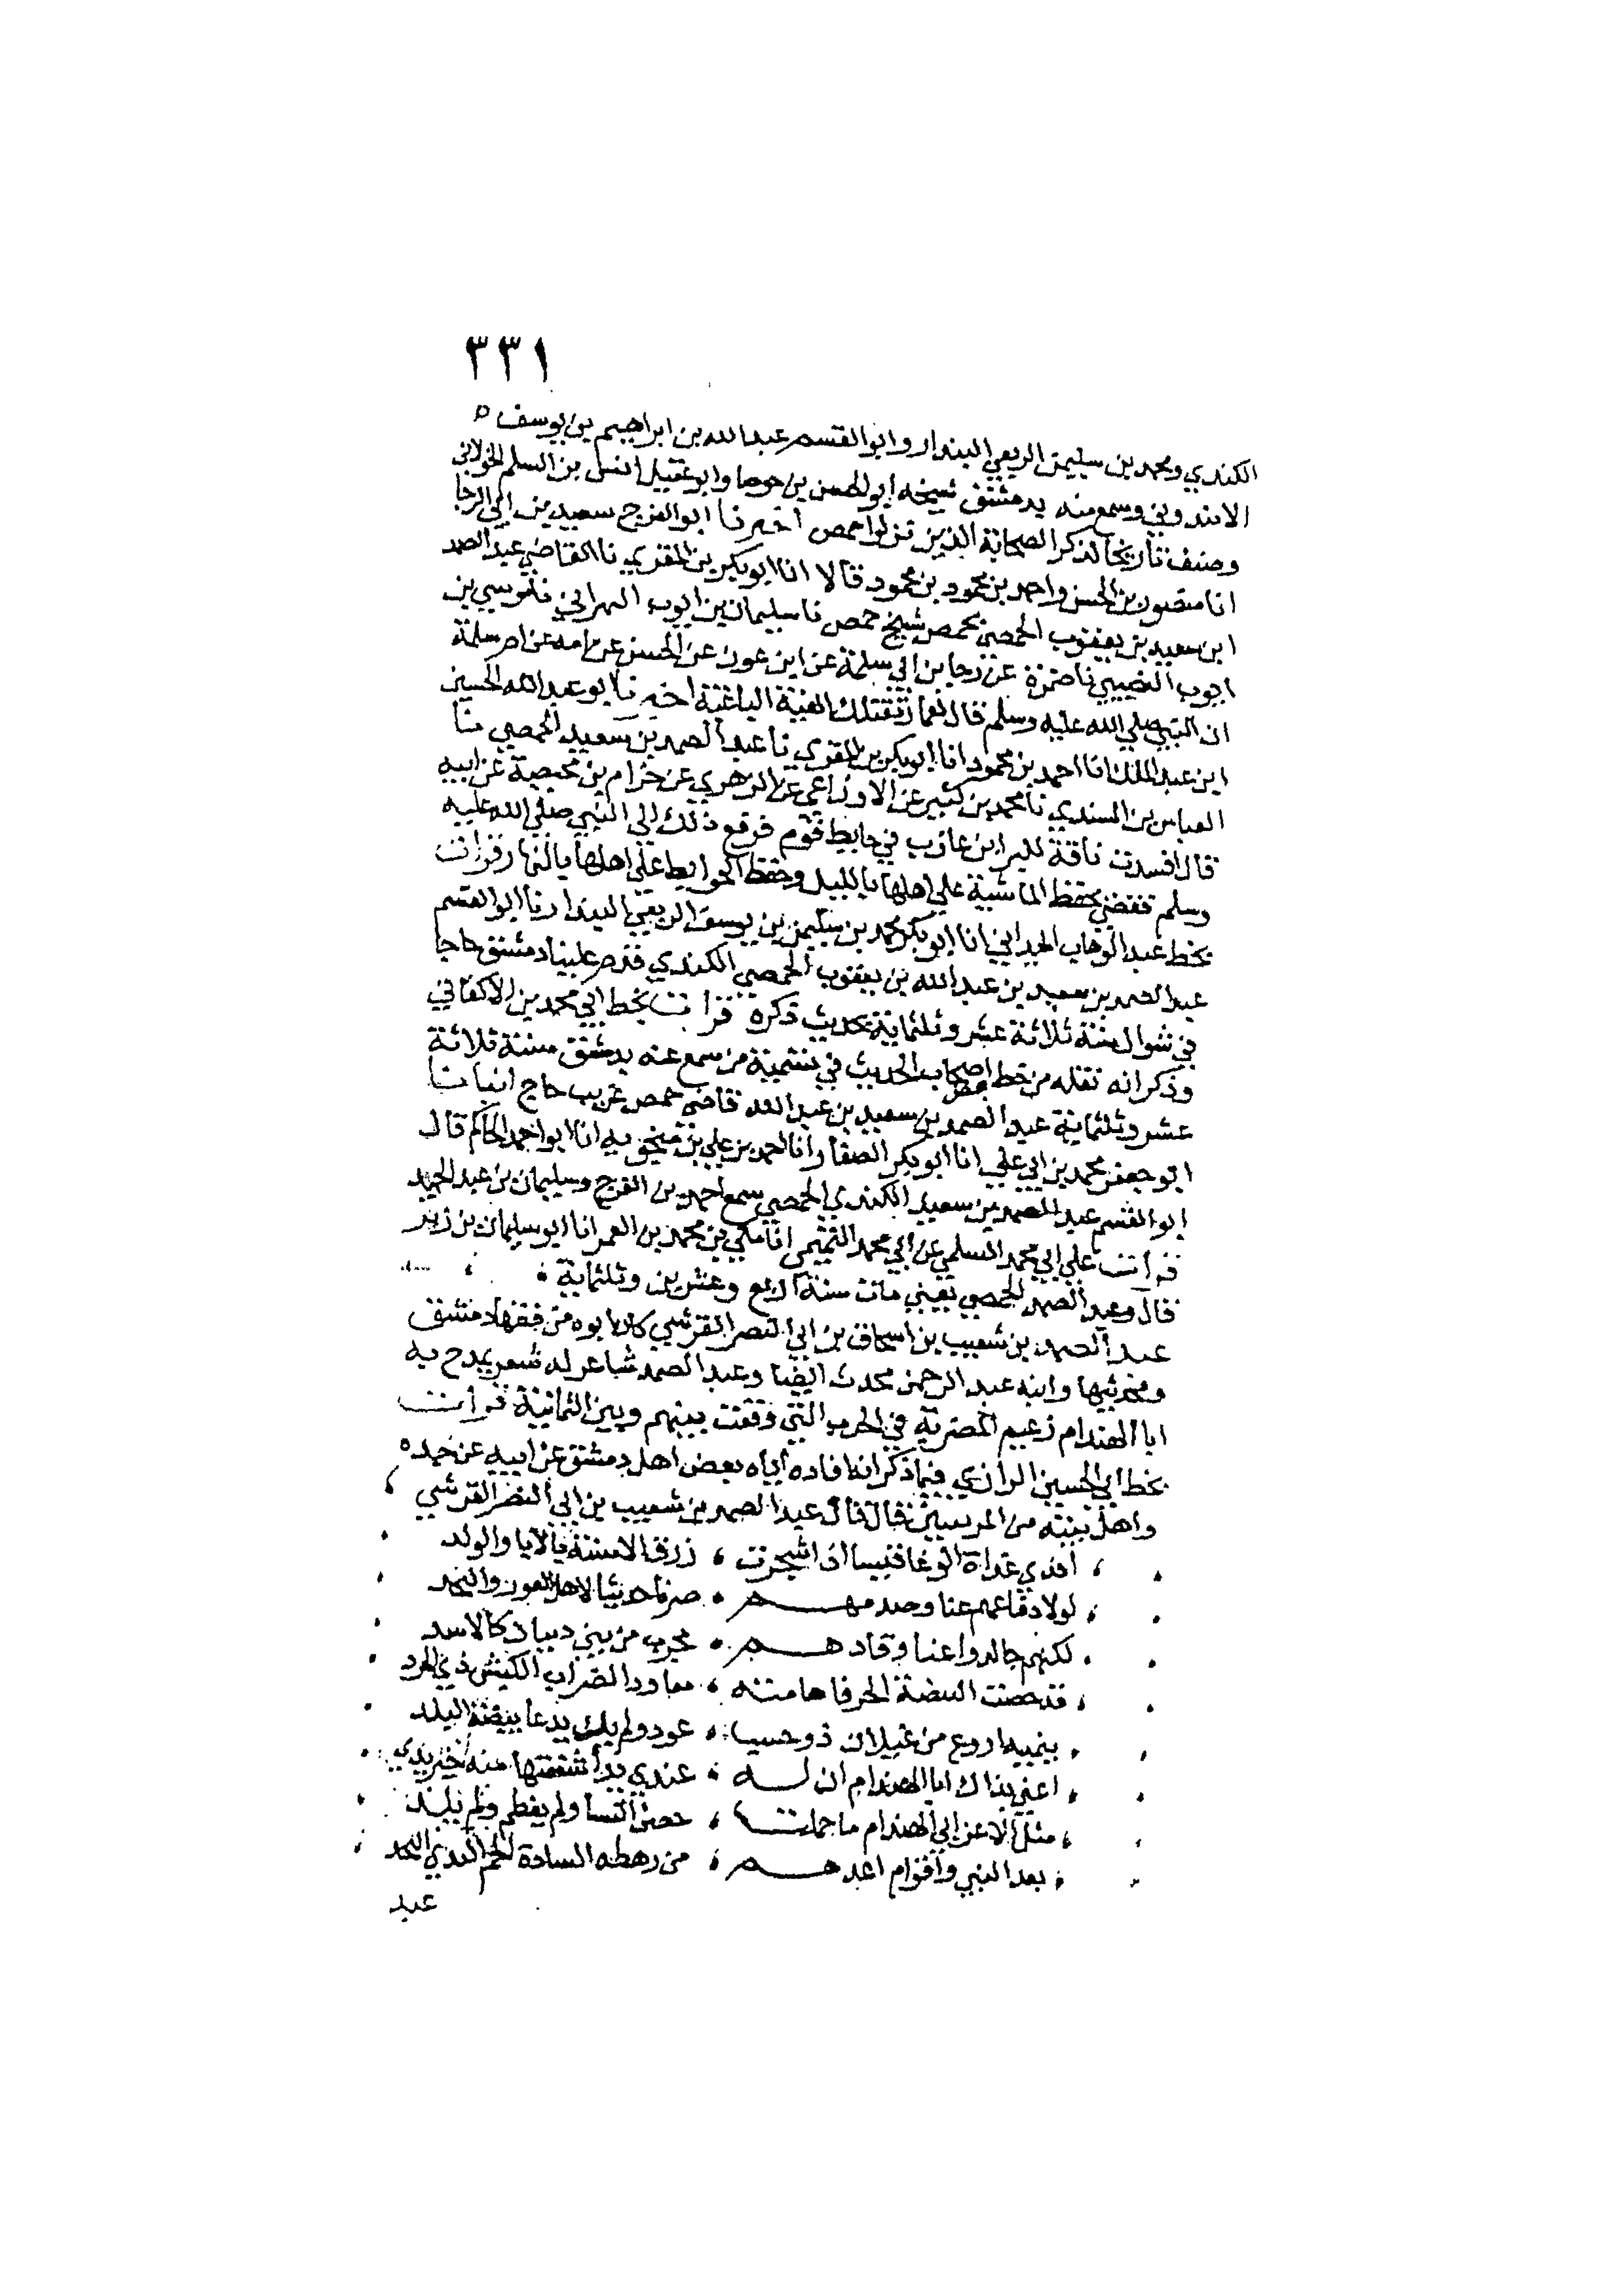 ٣٣١
الكندي ومحمد بن سليمن الربعي البندار وابو القسم عبد الله بن ابراهيم بن يوسف
الابندوني وسمع منه بدمشق شيخه ابو الحسن بن جوصا وابو عقيل انس بن السلم الخولاني
وصنف تاريخا لذكر الصحابة الذين نزلوا حمص اخبرنا ابو الفرج سعيد بن ابي الرجا
انا منصور بن الحسن واحمد بن محمود بن محمود قالا انا ابو بكر بن المقري نا القاضي عبد الصمد
ابن سعيد بن يعقوب الحمصي بحمص شيخ حمص نا سليمان بن ايوب البهراني نا موسي بن
ايوب النصيبي نا ضمرة عن رجا بن ابي سلمة عن ابن عون عن الحسن عن امه عن ام سلمة
ان النبي صلي الله عليه وسلم قال لعمار تقتلك الفية الباغية اخبرنا ابو عبد الله الحسين
ابن عبد الملك انا احمد بن محمود انا ابو بكر بن المقري نا عبد الصمد بن سعيد الحمصي نا
العباس بن السندي نا محمد بن كثير عن الاوزاعي عن الزهري عن حزام بن محيصة عن ابيه
قال افسدت ناقة للبرا بن عازب في حايط قوم فرفع ذلك الي النبي صلي الله عليه
وسلم فقضي بحفظ الماشية علي اهلها بالليل وحفظ الحوايط علي اهلها بالنهار قرات
بخط عبد الوهاب الميداني انا ابو بكر محمد بن سليمن بن يوسف الربعي البندار نا ابو القسم
عبد الصمد بن سعيد بن عبد الله بن يعقوب الحمصي الكندي قدم علينا دمشق حاجا
في شوال سنة ثلاثة عشر وثلثماية بحديث ذكره قرات بخط ابي محمد بن الاكفاني
وذكر انه نقله من خط بعض اصحاب الحديث في تسمية من سمع عنه بدمشق سنة ثلاثة
عشر وثلثماية عبد الصمد بن سعيد بن عبد الله قاضي حمص غريب حاج انبانا
ابو جعفر محمد بن ابي علي انا ابو بكر الصفار انا احمد بن علي بن منجويه انا ابو احمد الحاكم قال
ابو القسم عبد الصمد بن سعيد الكندي الحمصي سمع احمد بن الفرج وسليمان بن عبد الحميد
قرات علي ابي محمد السلمي عن ابي محمد التميمي انا مكي بن محمد بن الغمر انا ابو سليمان بن زبر
قال وعبد الصمد الحمصي يعني مات سنة اربع وعشرين وثلثماية
عبد الصمد بن شعيب بن اسحاق بن ابي النصر القرشي كان ابوه من فقها دمشق
ومحدثيها وابنه عبد الرحمن محدث ايضا وعبد الصمد شاعر له شعر يمدح به
ابا الهندام زعيم المضرية في الحرب التي وقعت بينهم وبين اليمانية قرات
بخط ابي الحسين الرازي فيما ذكر انه افاده اياه بعض اهل دمشق عن ابيه عن جده
واهل بيته من المريين قال قال عبد الصمد بن شعيب بن ابي النضر القرشي
افدي غداة الوغا قيسا اذا شجرت ، زرق الاسنة بالابا والولد
لولا دفاعهم عنا وصدمهم ، صرنا حديثا لاهل الغور والنجد
لكنهم جالدوا عنا وقادهم ، مجرب من بني ذبيان كالاسد
قد حصنت البيضة الحرفا هامته ، معاود الضراب الكبش ذي الحرد
ينميه اروع من غيلان ذو حسب ، عود ولم يك يدعا بيضة البلد
اعني بذاك ابا الهندام ان له ، عندي يدا شفعتها منه خير يد
مثل الاغر ابي الهندام ما حملت ، حصن النسا ولم يفطم ولم تلد
بعد النبي واقوام اعدهم ، من رهطه السادة
عبد